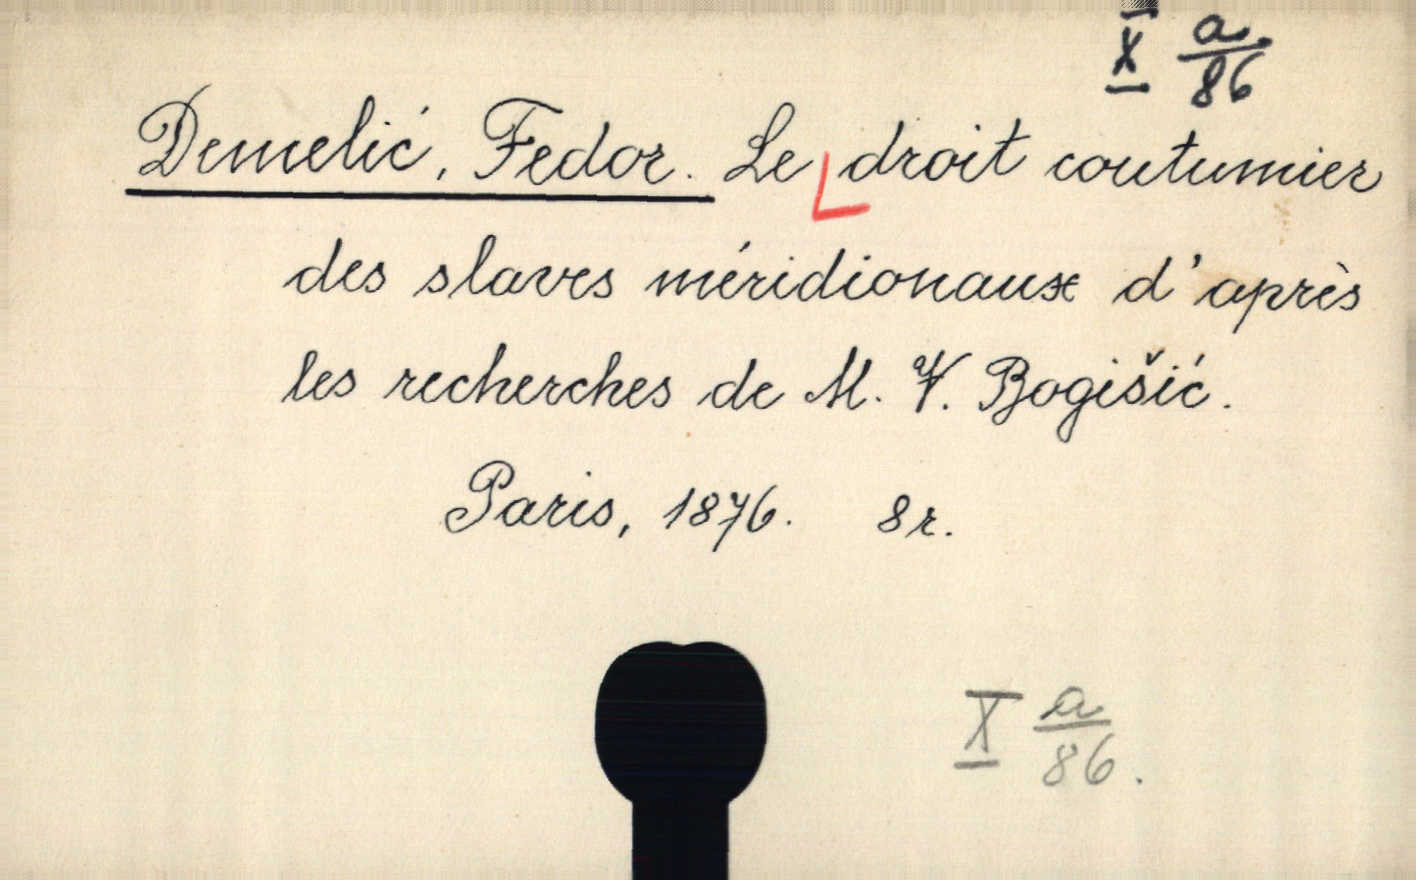 X a/86
Demelić, Fedor. Le droit coutumier
des slaves méridionaux d'après
les recherches de M. V. Bogišić.
Paris, 1876. 8r.
X a/86.